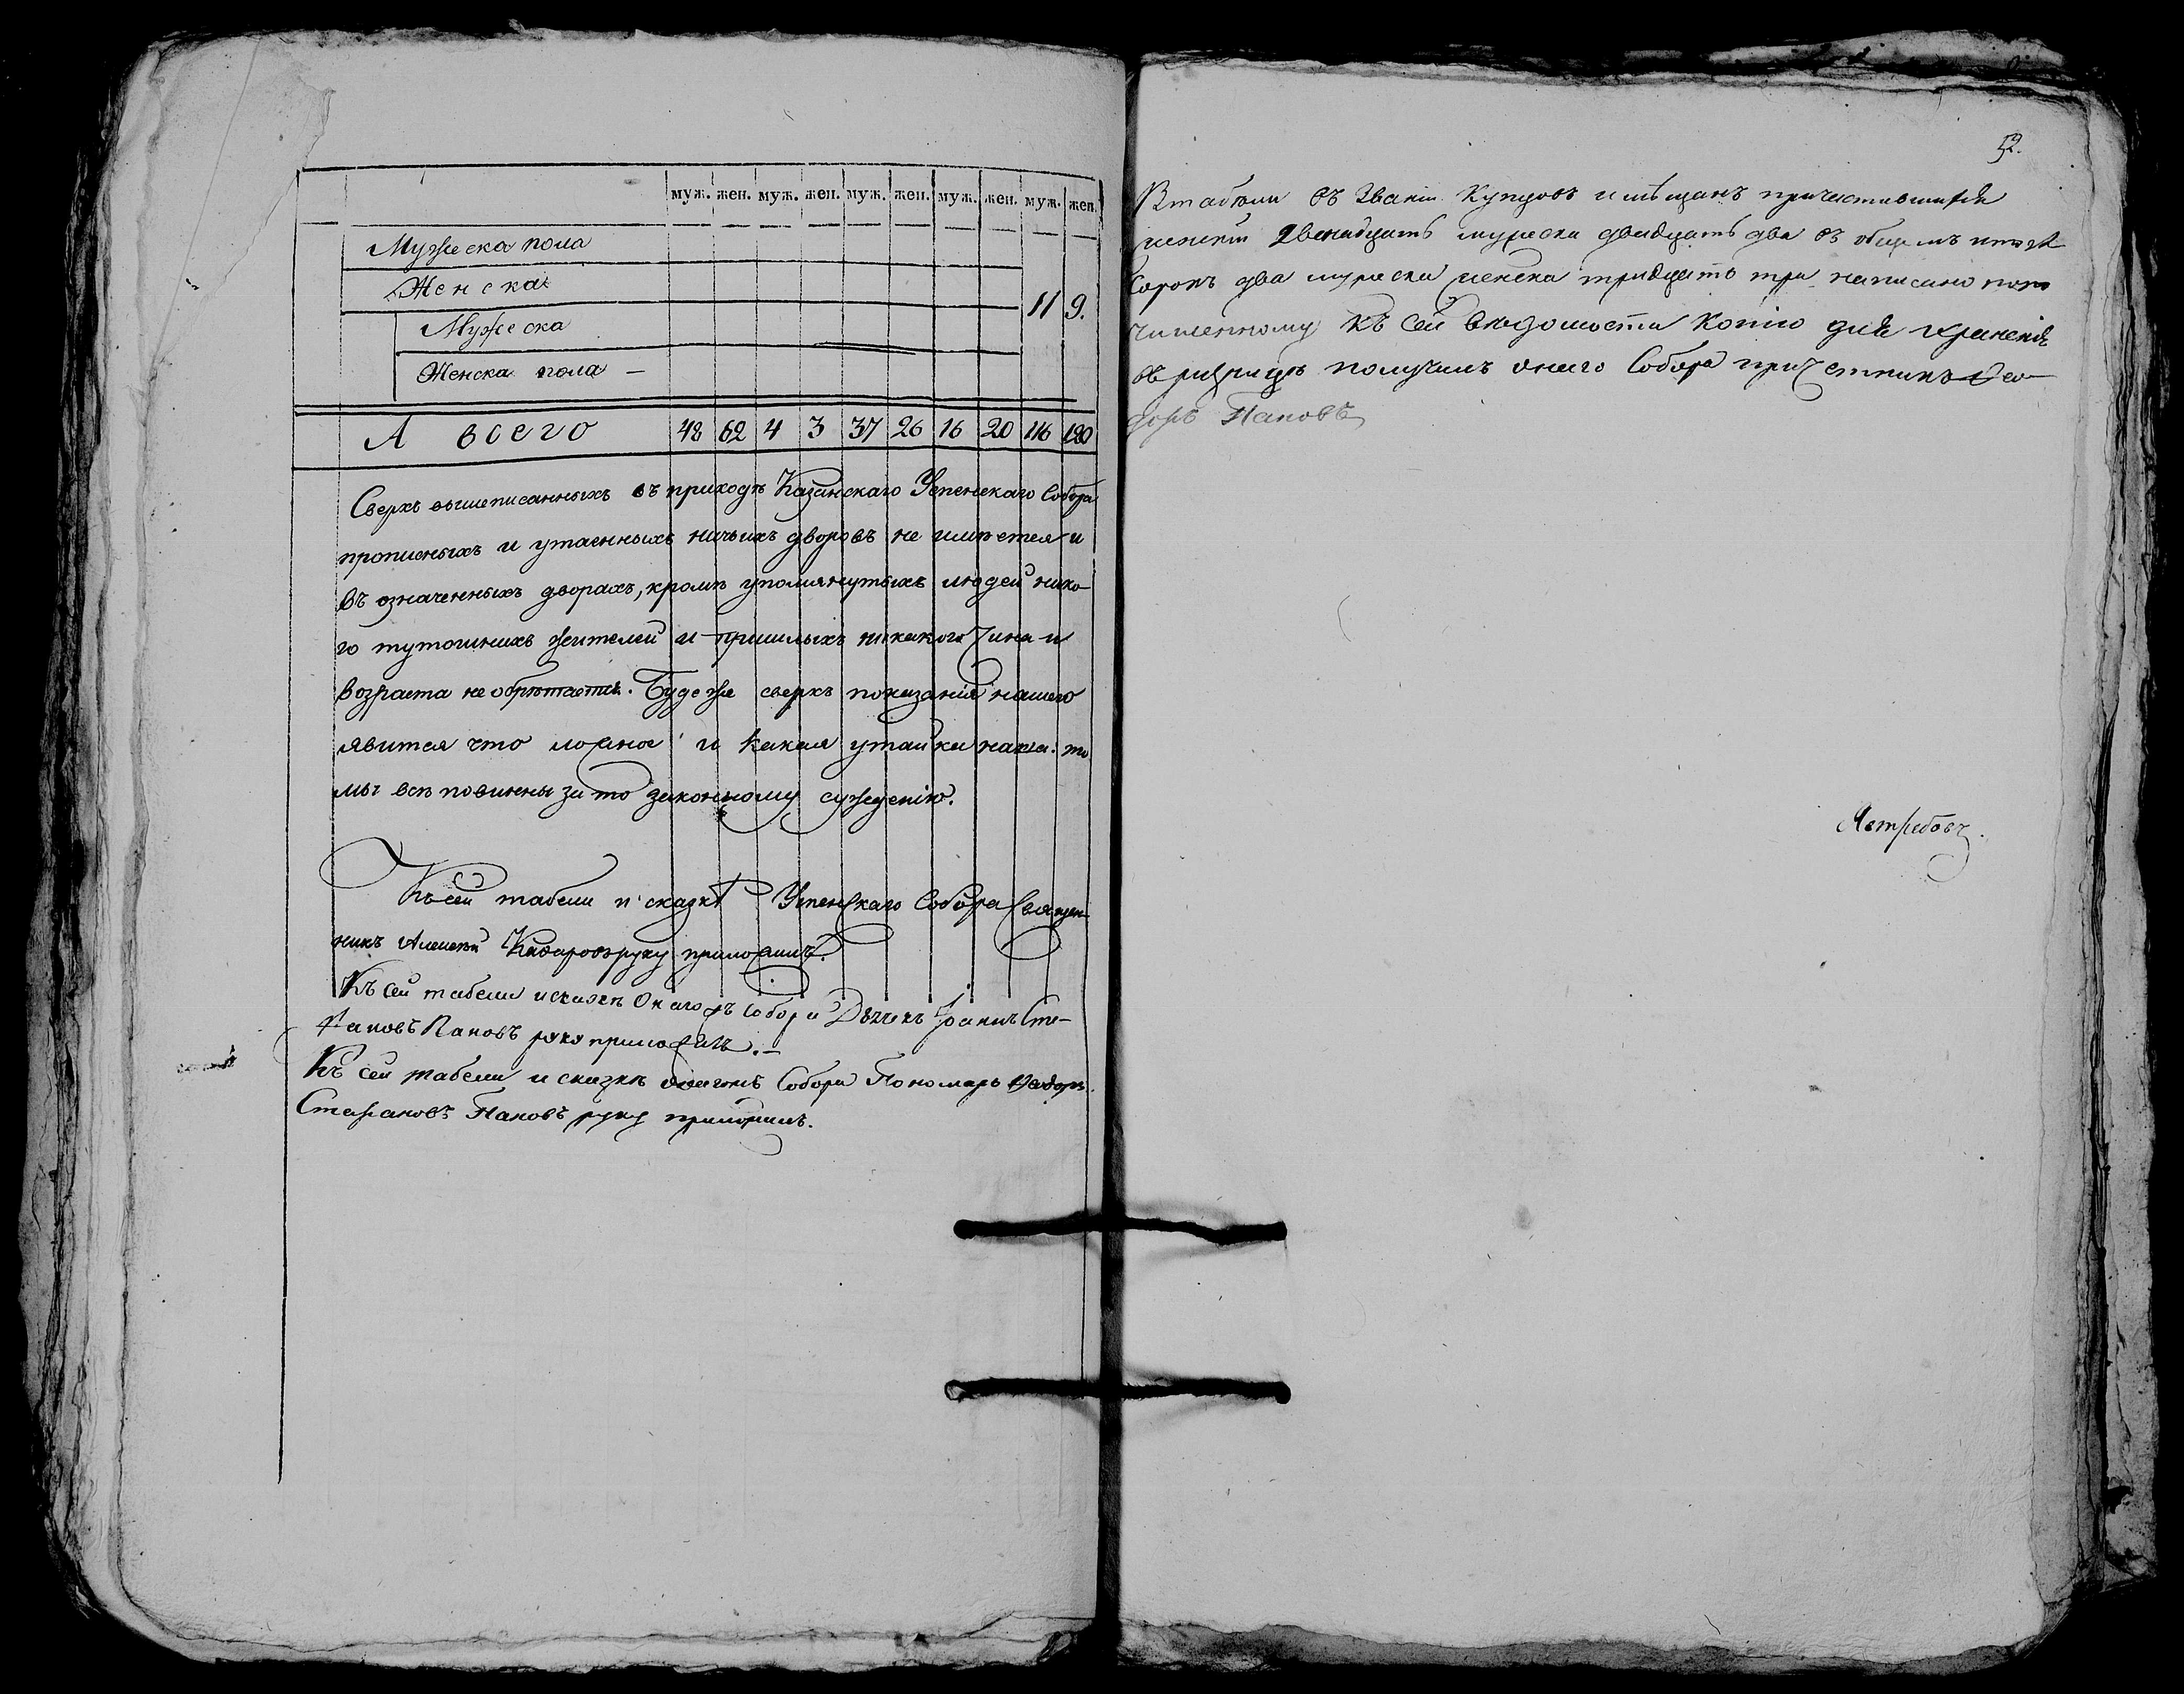 муж. жен. муж. жен. муж. жен. муж. жен. муж. жен.
Мужеска пола
Женска
11 9.
Мужеска
Женска пола —
А всего 48 62 4 3 37 26 16 20 116 120
Сверхъ вышеписанныхъ въ приходѣ Казанскаго Успенскаго Собора
прописныхъ и утаенныхъ ничьихъ дворовъ не имѣется и
въ означенныхъ дворахъ, кромѣ упомянутыхъ людей нико-
го тутошнихъ жителей и пришлыхъ никакого чина и
возраста не обрѣтается. Буде же сверхъ показанія нашего
явится что ложное и какая утайка наша. то
мы всѣ повинны за то законному сужденію.
Къ сей табели и сказкѣ Успенскаго Собора Священ-
никъ Алексей руку приложилъ.
Къ сей табели и сказкѣ Онагожъ Собора Дьячекъ Іоаннъ Сте-
фановъ Пановъ руку приложилъ. —
Къ сей табели и сказкѣ онагожъ Собора Пономарь Феодоръ
Стефановъ Пановъ руку приложилъ.
52.
Въ табели въ званіи Купцовъ и мѣщанъ причастившихся
женска двенадцать мужеска двадцать два въ общемъ итогѣ
сорокъ два мужеска женска тридцать три написано попо
чищенному къ сей вѣдомости копію для храненія
въ ризницѣ получилъ онаго Собора причетникъ Фео-
доръ Пановъ
Ястребовъ.